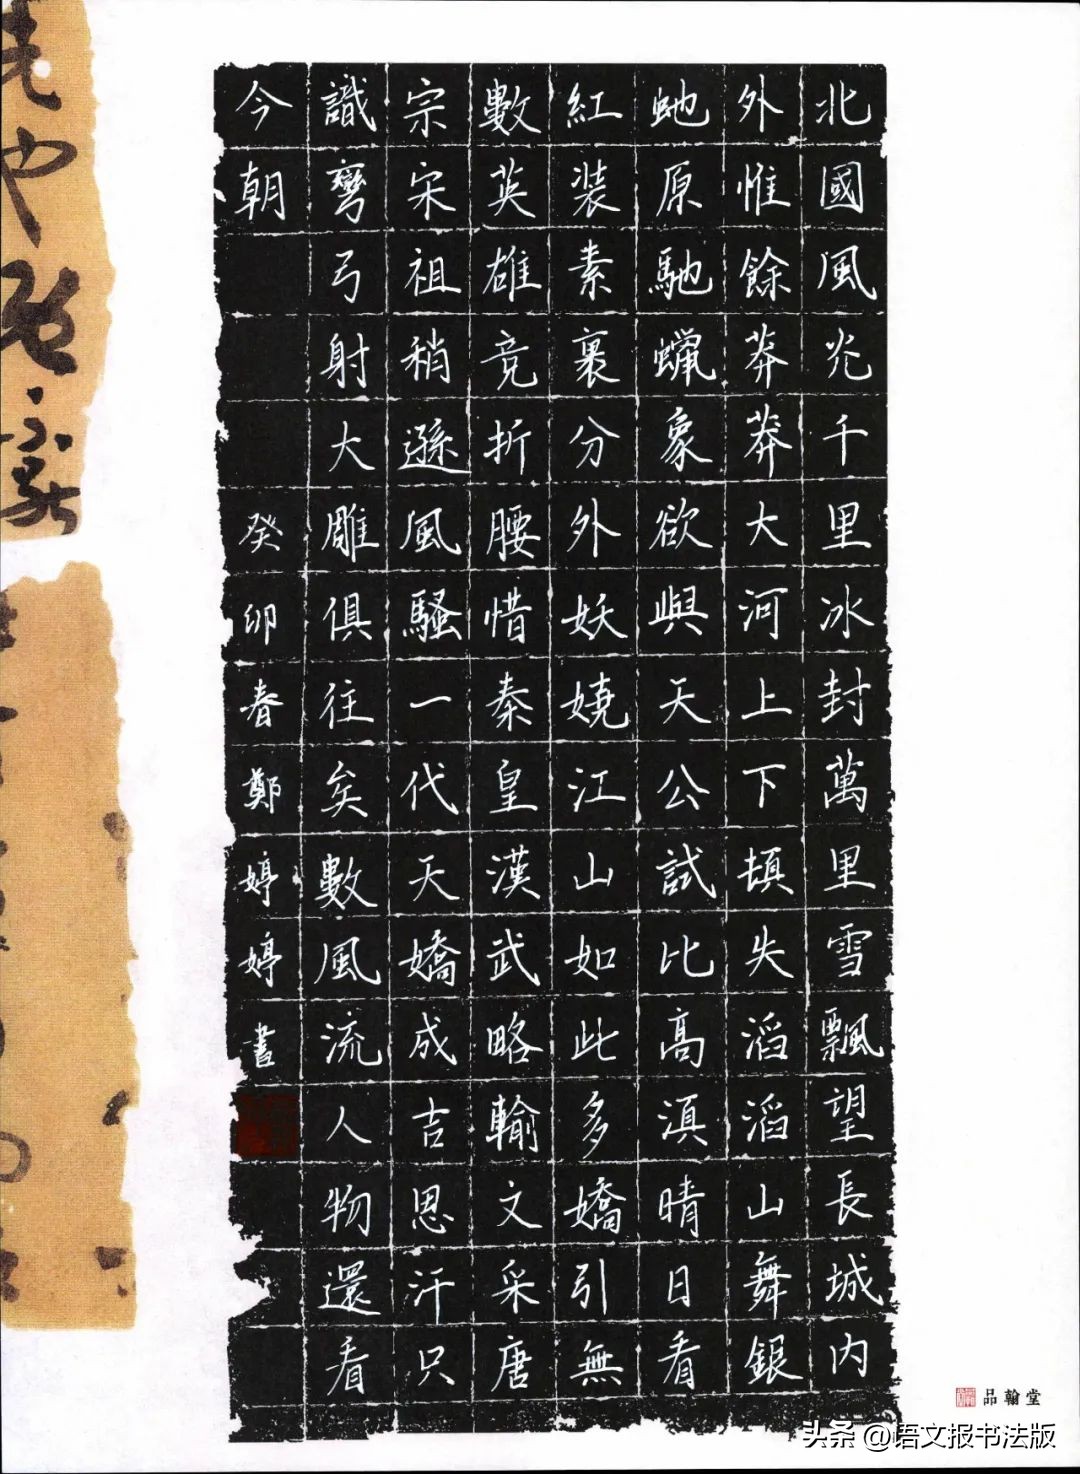 北國風光千里冰封萬里雪飄望長城内
外惟餘莽莽大河上下頓失滔滔山舞銀
虵原馳蠟象欲與天公試比高湏晴日看
紅装素裹分外妖嬈江山如此多嬌引無
數英雄竞折腰惜秦皇漢武略輸文采唐
宗宋祖稍遜風騷一代天嬌成吉思汗只
識彎弓射大雕俱往矣數風流人物還看
今朝 癸卯春鄭婷婷書
品翰堂
头条 @语文报书法版